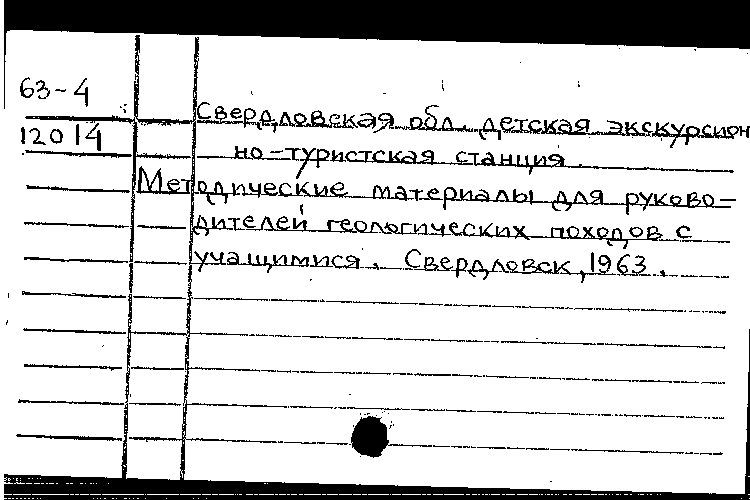 63-4
Свердловская обл. детская экскурсион
12014
но-туристская станция.
Методические материалы для руково-
дителей геологических походов с
учащимися. Свердловск, 1963.